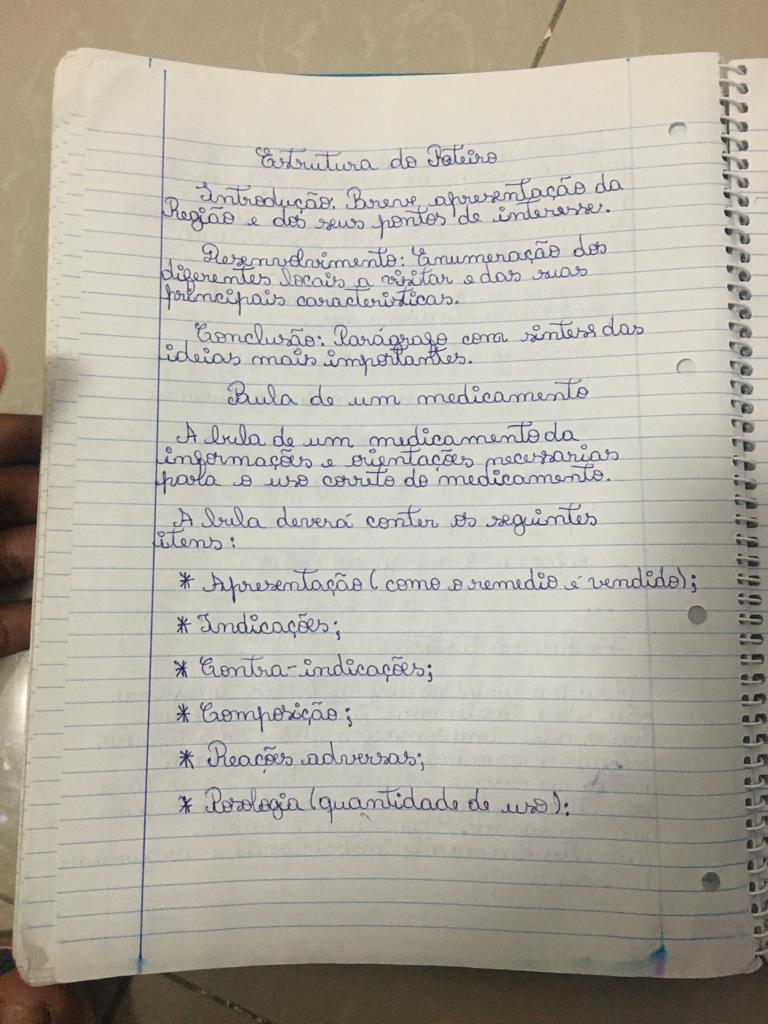 Estrutura do Roteiro
Introdução: Breve apresentação da
Região e dos seus pontos de interesse.
Desenvolvimento: Enumeração dos
diferentes locais a visitar e das suas
principais caracteristicas.
Conclusão: Parágrafo com sintese das
ideias mais importantes.
Bula de um medicamento
A bula de um medicamento da
informações e orientações necessarias
para o uso correto do medicamento.
A bula deverá conter os seguintes
itens:
* Apresentação (como o remedio é vendido);
* Indicações;
* Contra-indicações;
* Composição;
* Reações adversas;
* Posologia (quantidade de uso):